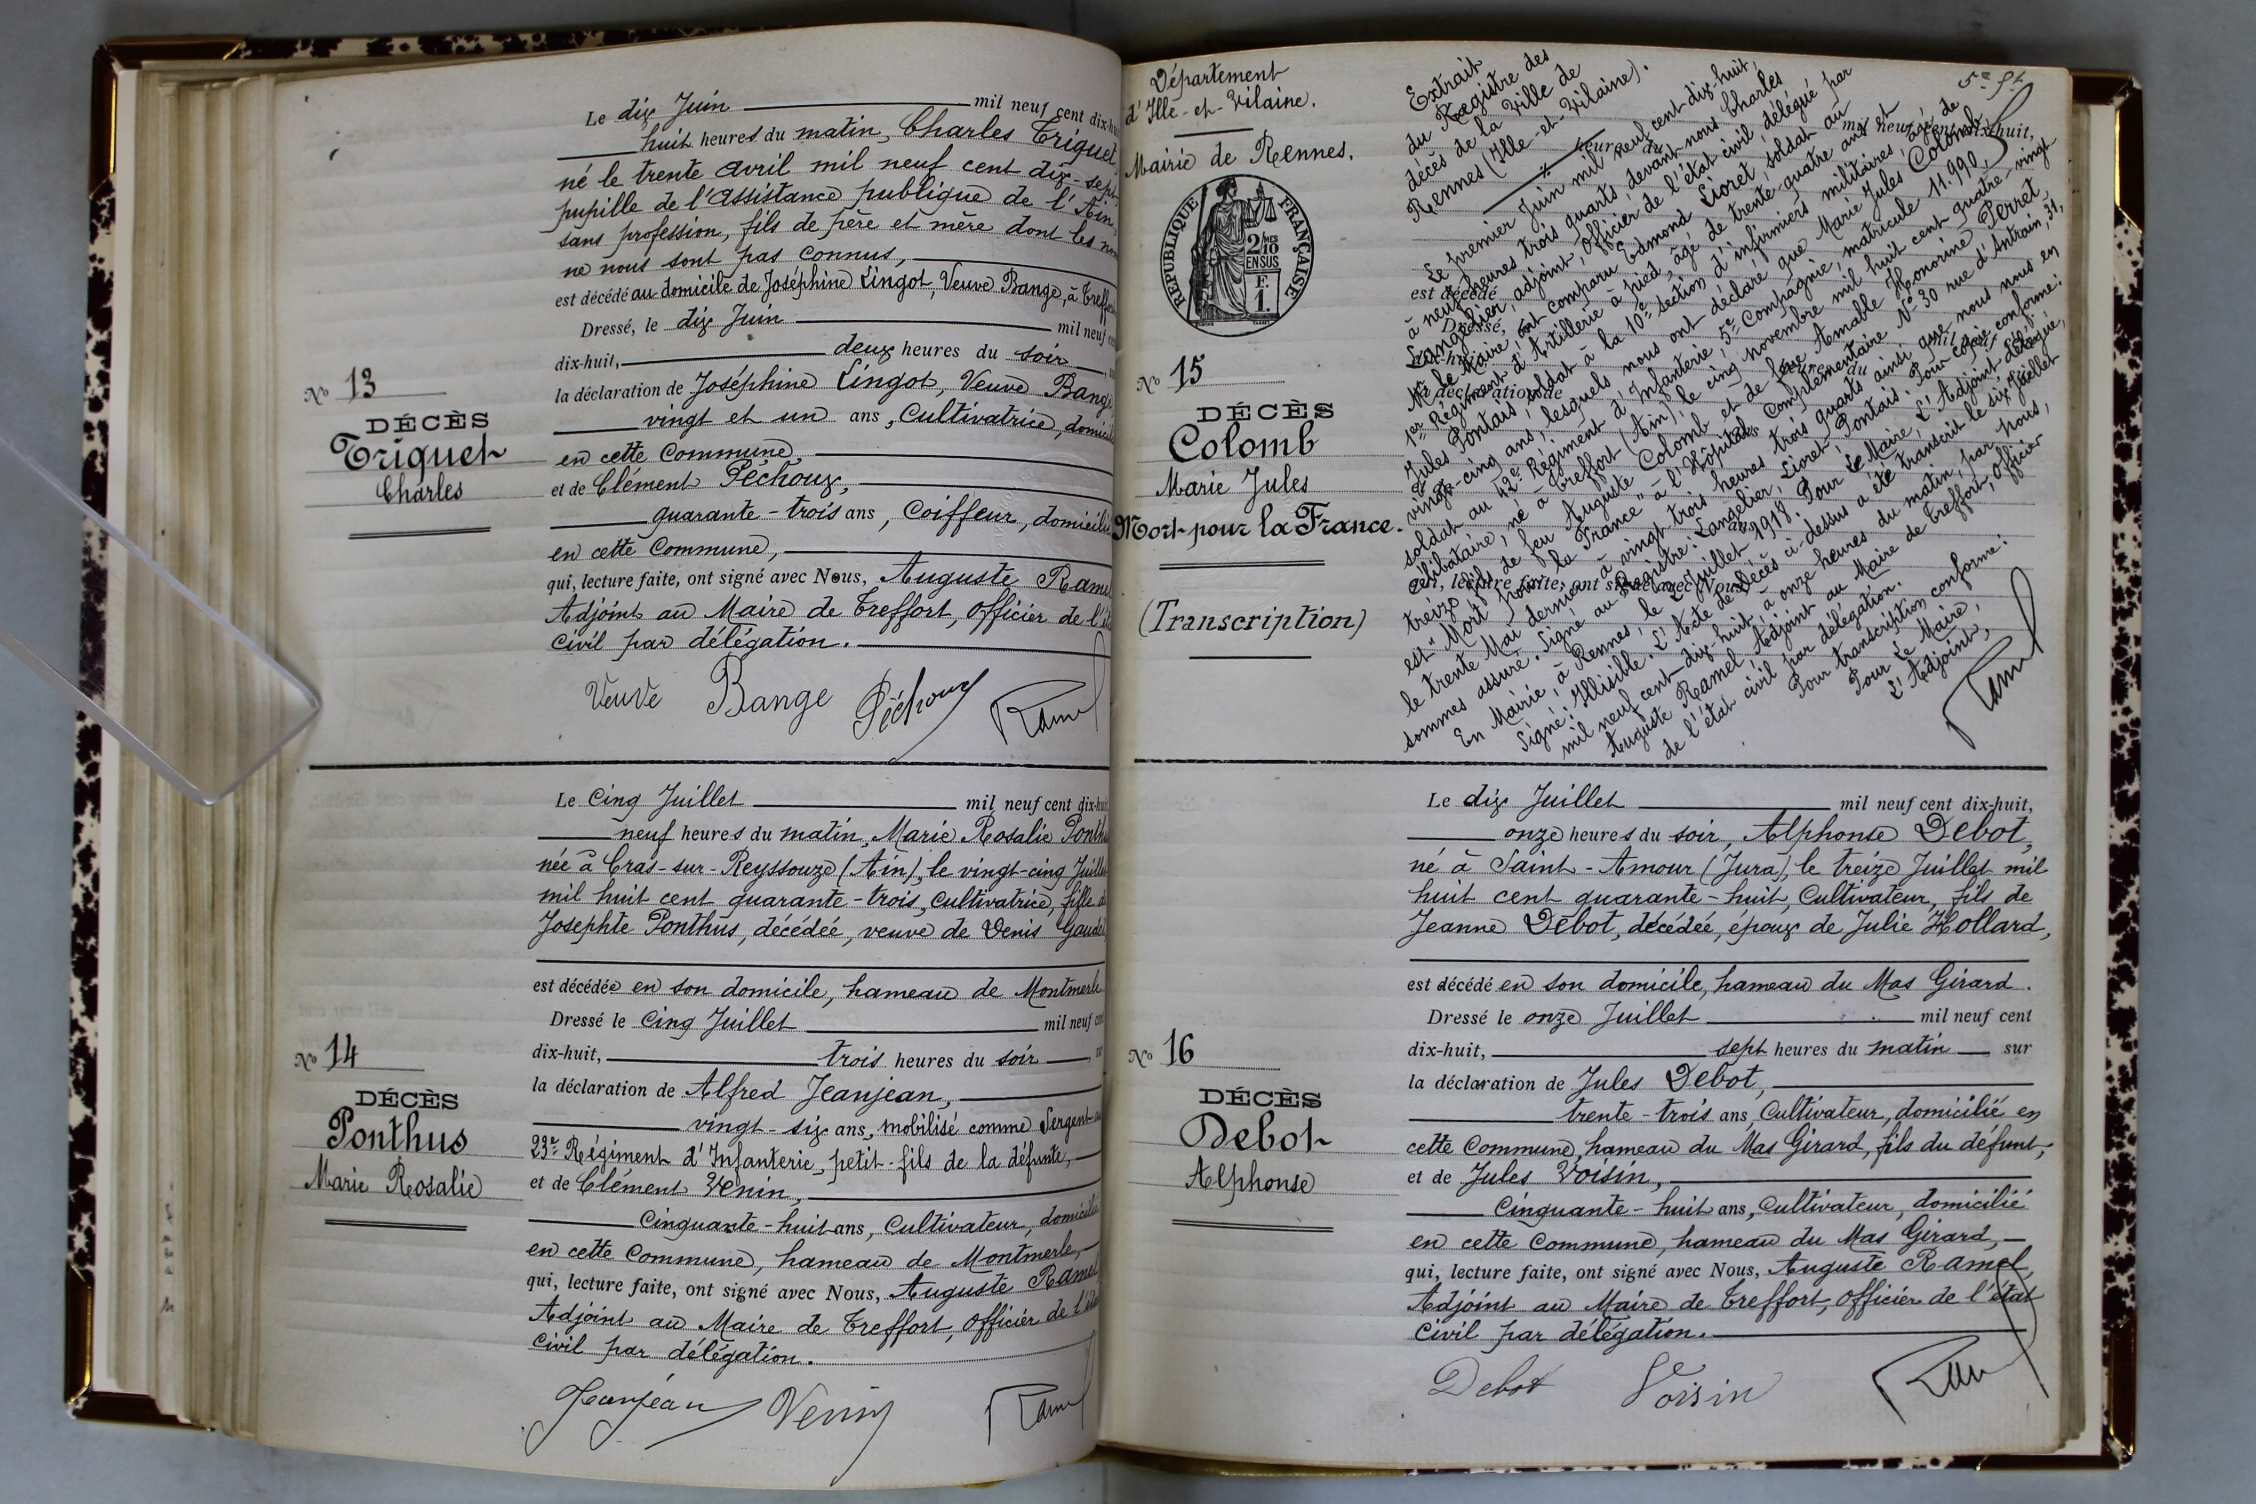 Le dix Juin mil neuf cent dix-hu
huit heures du matin, Charles Triquet
né le trente avril mil neuf cent dix-sept
pupille de l'Assistance publique de l'Ain,
sans profession, fils de père et mère dont les nom
ne nous sont pas connus,
est décédé au domicile de Joséphine Lingot, Veuve Bange, à Treffort
Dressé, le dix Juin mil neuf cent
dix-huit, deux heures du soir
la déclaration de Joséphine Lingot, Veuve Bange
vingt et un ans, Cultivatrice, domicil
en cette Commune,
et de Clément Péchoux,
quarante-trois ans, Coiffeur, domicilié
en cette Commune,
qui, lecture faite, ont signé avec Nous, Auguste Ramel
Adjoint au Maire de Treffort, Officier de l'ét
civil par délégation.
Veuve Bange Péchoux Ramel
No 13
DÉCÈS
Triquet
Charles
Le Cinq Juillet mil neuf cent dix-huit
neuf heures du matin, Marie Rosalie Ponthu
née à Cras-sur-Reyssouze (Ain), le vingt-cinq Juillet
mil huit cent quarante-trois, Cultivatrice, fille d
Josephte Ponthus, décédée, veuve de Denis Gaude
est décédée en son domicile, hameau de Montmerle
Dressé le Cinq Juillet mil neuf cen
dix-huit, trois heures du soir
la déclaration de Alfred Jeanjean,
vingt-six ans, mobilisé comme Sergent au
23e Régiment d'Infanterie, petit-fils de la défunte,
et de Clément Venin,
Cinquante-huit ans, Cultivateur, domicilié
en cette Commune, hameau de Montmerle,
qui, lecture faite, ont signé avec Nous, Auguste Ramel
Adjoint au Maire de Treffort, Officier de l'éta
civil par délégation.
Jeanjean Venin Ramel
No 14
DÉCÈS
Ponthus
Marie Rosalie
Département
d'Ille-et-Vilaine.
Mairie de Rennes.
RÉPUBLIQUE FRANÇAISE
2/10
EN SUS
F.
1.
No 15
DÉCÈS
Colomb
Marie Jules
Mort pour la France.
(Transcription)
Extrait
du Registre des
décès de la Ville de
Rennes (Ille-et-Vilaine).
Le premier Juin mil neuf cent dix-huit,
à neuf heures trois quarts, devant nous Charles
Langelier, adjoint, Officier de l'état civil délégué par
Mr le Maire, ont comparu Edmond Lioret, soldat au
1er Régiment d'Artillerie à pied, âgé de trente-quatre ans et
Jules Pontais, soldat à la 10e section d'infirmiers militaires, âgé de
vingt-cinq ans, lesquels nous ont déclaré que Marie Jules Colomb
soldat au 42e Régiment d'Infanterie 5e Compagnie, matricule 11.990,
célibataire, né à Treffort (Ain), le cinq novembre mil huit cent quatre-vingt
treize, fils de feu Auguste Colomb et de feue Amable Honorine Perret
est "Mort pour la France" à l'Hôpital Complémentaire No 30 rue d'Antrain, 31,
le trente Mai dernier à vingt-trois heures trois quarts ainsi que nous nous en
sommes assuré. Signé au Registre: Langelier, Lioret, Pontais. Pour copie conforme:
En Mairie, à Rennes, le 2 Juillet 1918. Pour Le Maire, L'Adjoint délégué,
Signé: Illisible. L'Acte de décès ci-dessus a été transcrit le six Juillet
mil neuf cent dix-huit, à onze heures du matin par nous,
Auguste Ramel, Adjoint au Maire de Treffort, Officier
de l'état civil par délégation.
Pour transcription conforme:
Pour Le Maire,
L'Adjoint,
Ramel
mil neuf cent dix-huit,
heures du
est décédé
Dressé,
mil neuf cent
dix-huit,
heures du
la déclaration de
qui, lecture faite, ont signé avec Nous,
Le dix Juillet mil neuf cent dix-huit,
onze heures du soir, Alphonse Debot,
né à Saint-Amour (Jura), le treize Juillet mil
huit cent quarante-huit, Cultivateur, fils de
Jeanne Debot, décédée, époux de Julie Hollard,
est décédé en son domicile, hameau du Mas Girard.
Dressé le onze Juillet mil neuf cent
dix-huit, sept heures du matin sur
la déclaration de Jules Debot,
trente-trois ans, Cultivateur, domicilié en
cette Commune, hameau du Mas Girard, fils du défunt,
et de Jules Voisin,
Cinquante-huit ans, Cultivateur, domicilié
en cette Commune, hameau du Mas Girard,
qui, lecture faite, ont signé avec Nous, Auguste Ramel,
Adjoint au Maire de Treffort, Officier de l'état
civil par délégation.
Debot Voisin Ramel
No 16
DÉCÈS
Debot
Alphonse